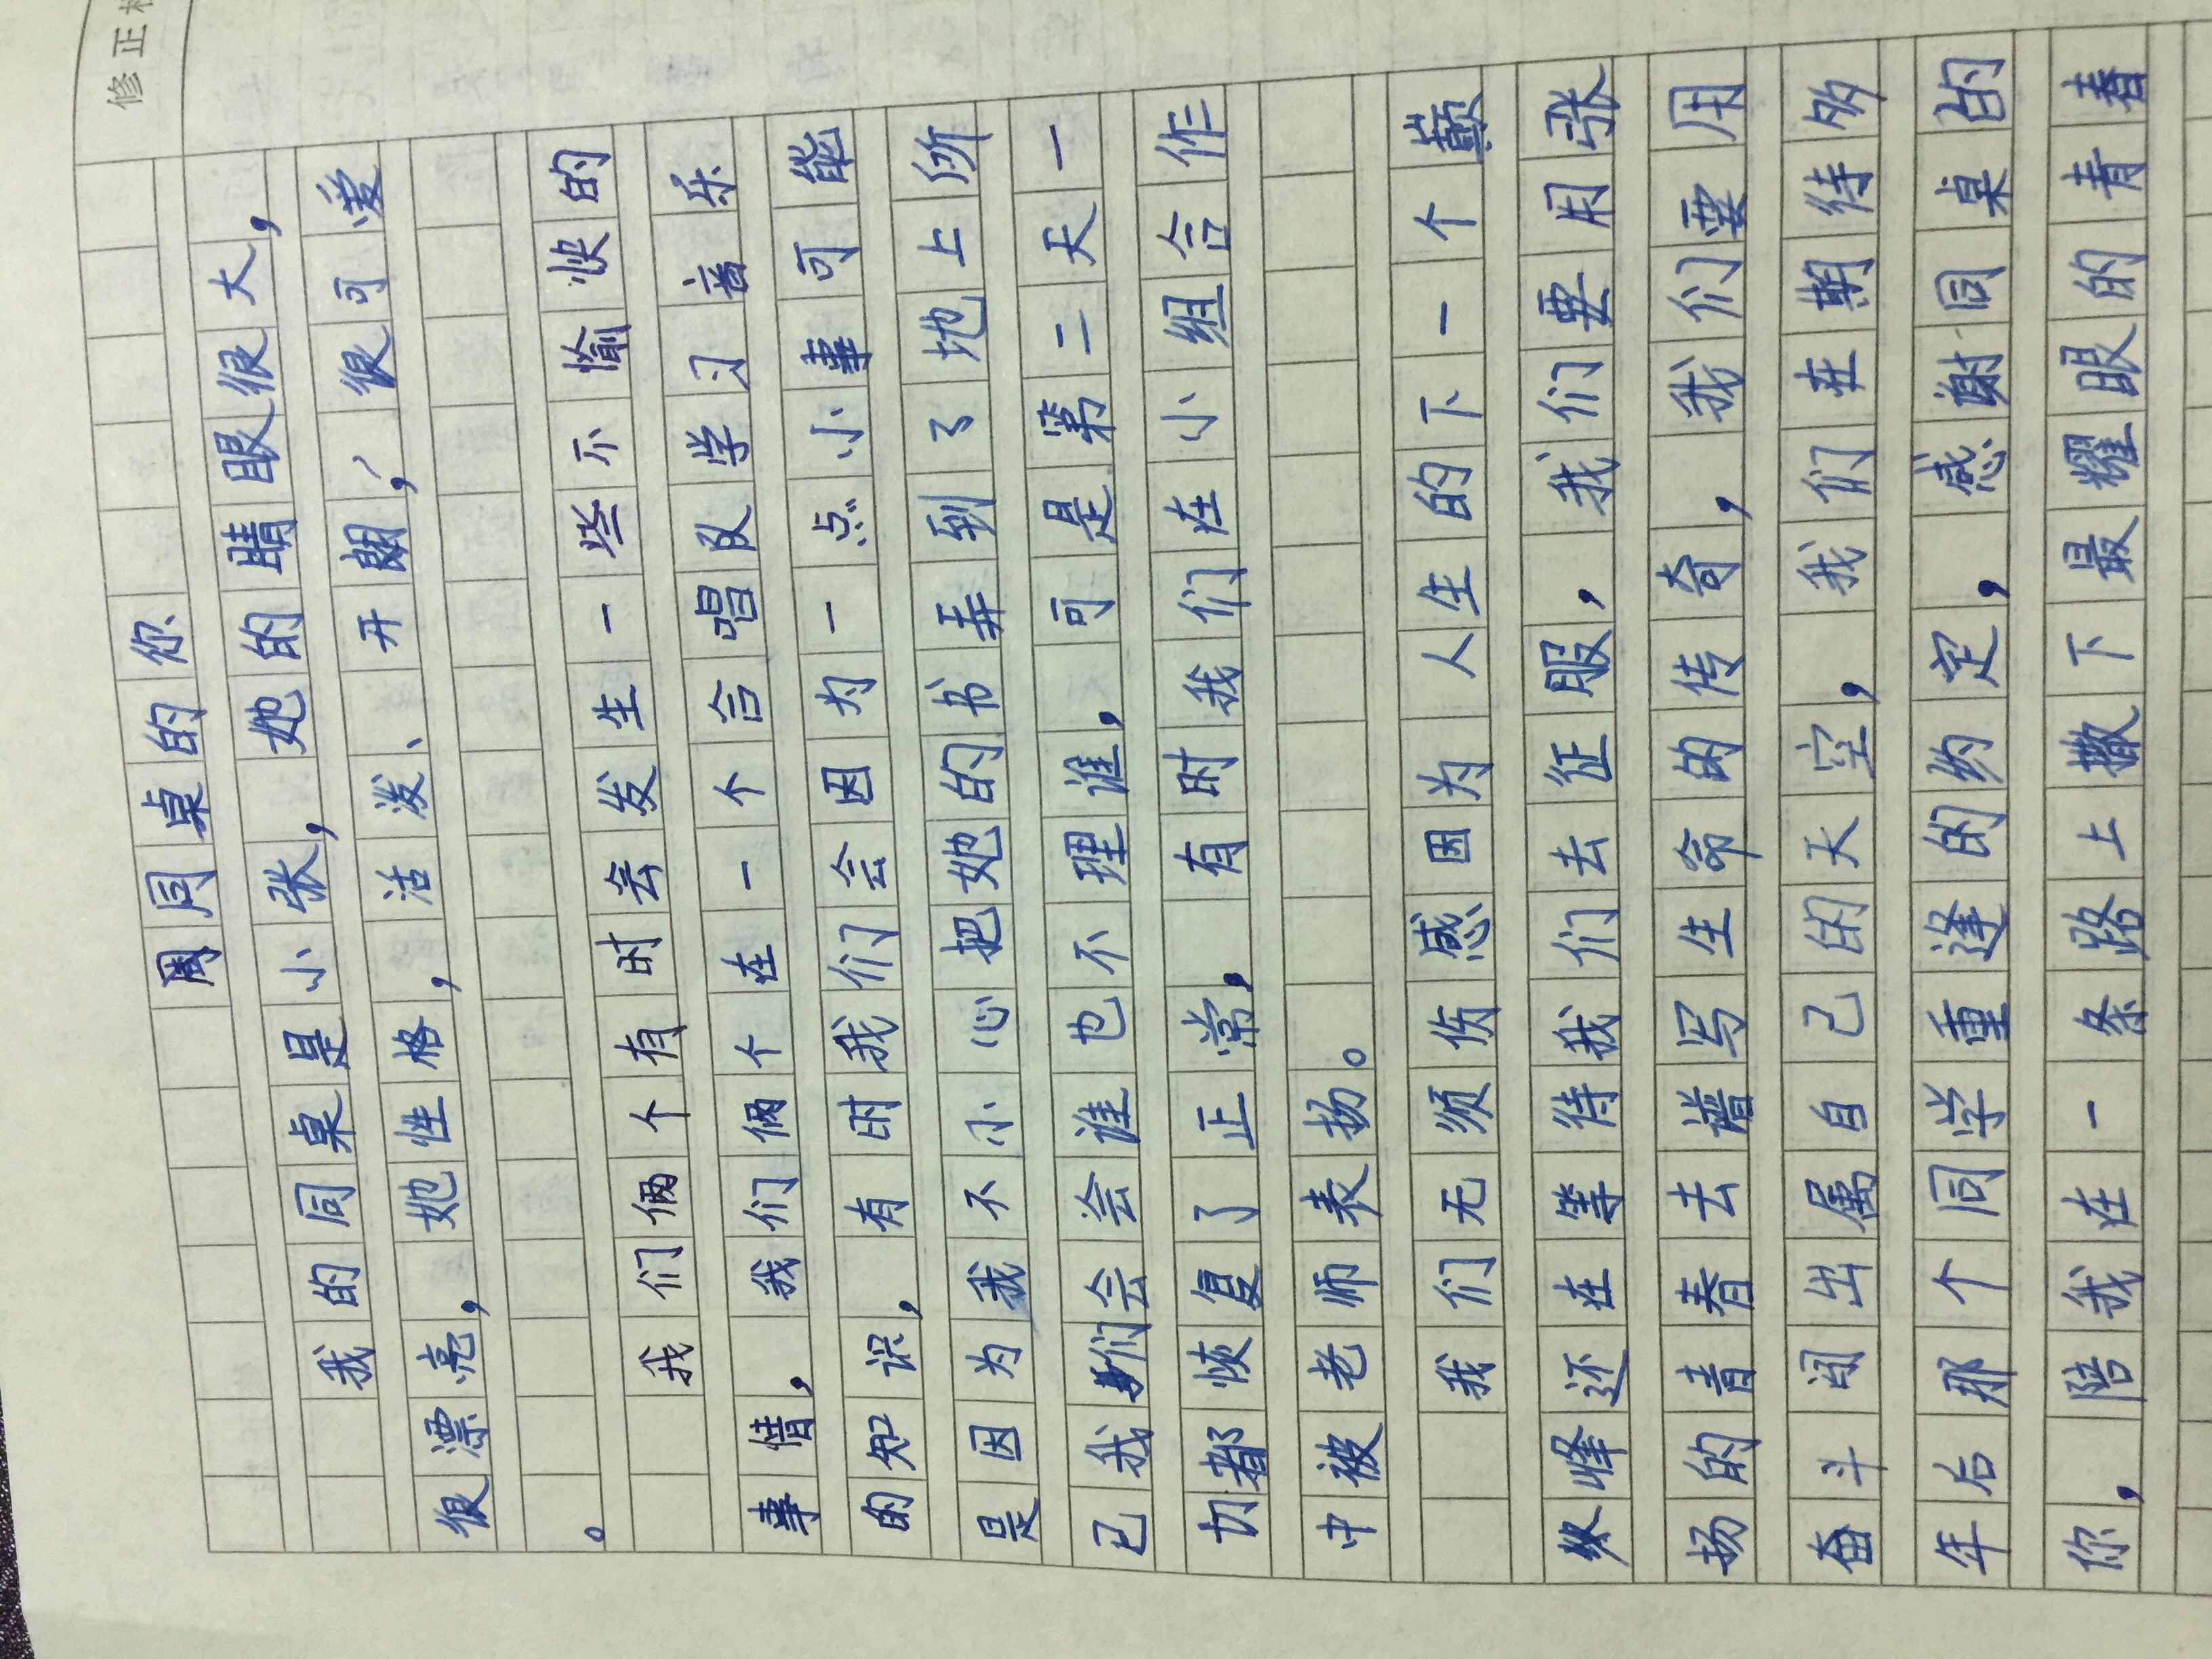 修正
周同桌的你
我的同桌是小张，她的睛眼很大，
很漂亮，她性格，活泼、开朗，很可爱
。
我们俩个有时会发生一些不愉快的
事情，我们俩个在一个合唱队学习音乐
的知识，有时我们会因为一点小事可能
是因为我不小心把她的书弄到了地上所
已我们会会谁也不理谁，可是第二天一
切都恢复了正常，有时我们在小组合作
中被老师表扬。
我们无须伤感因为人生的下一个巅
峰还在等待我们去征服，我们要用张
扬的青春去谱写生命的传奇，我们要用
奋斗闯出属自己的天空，我们在期待多
年后那个同学重逢的约定，感谢同桌的
你，陪我在一条路上撒下最耀眼的青春